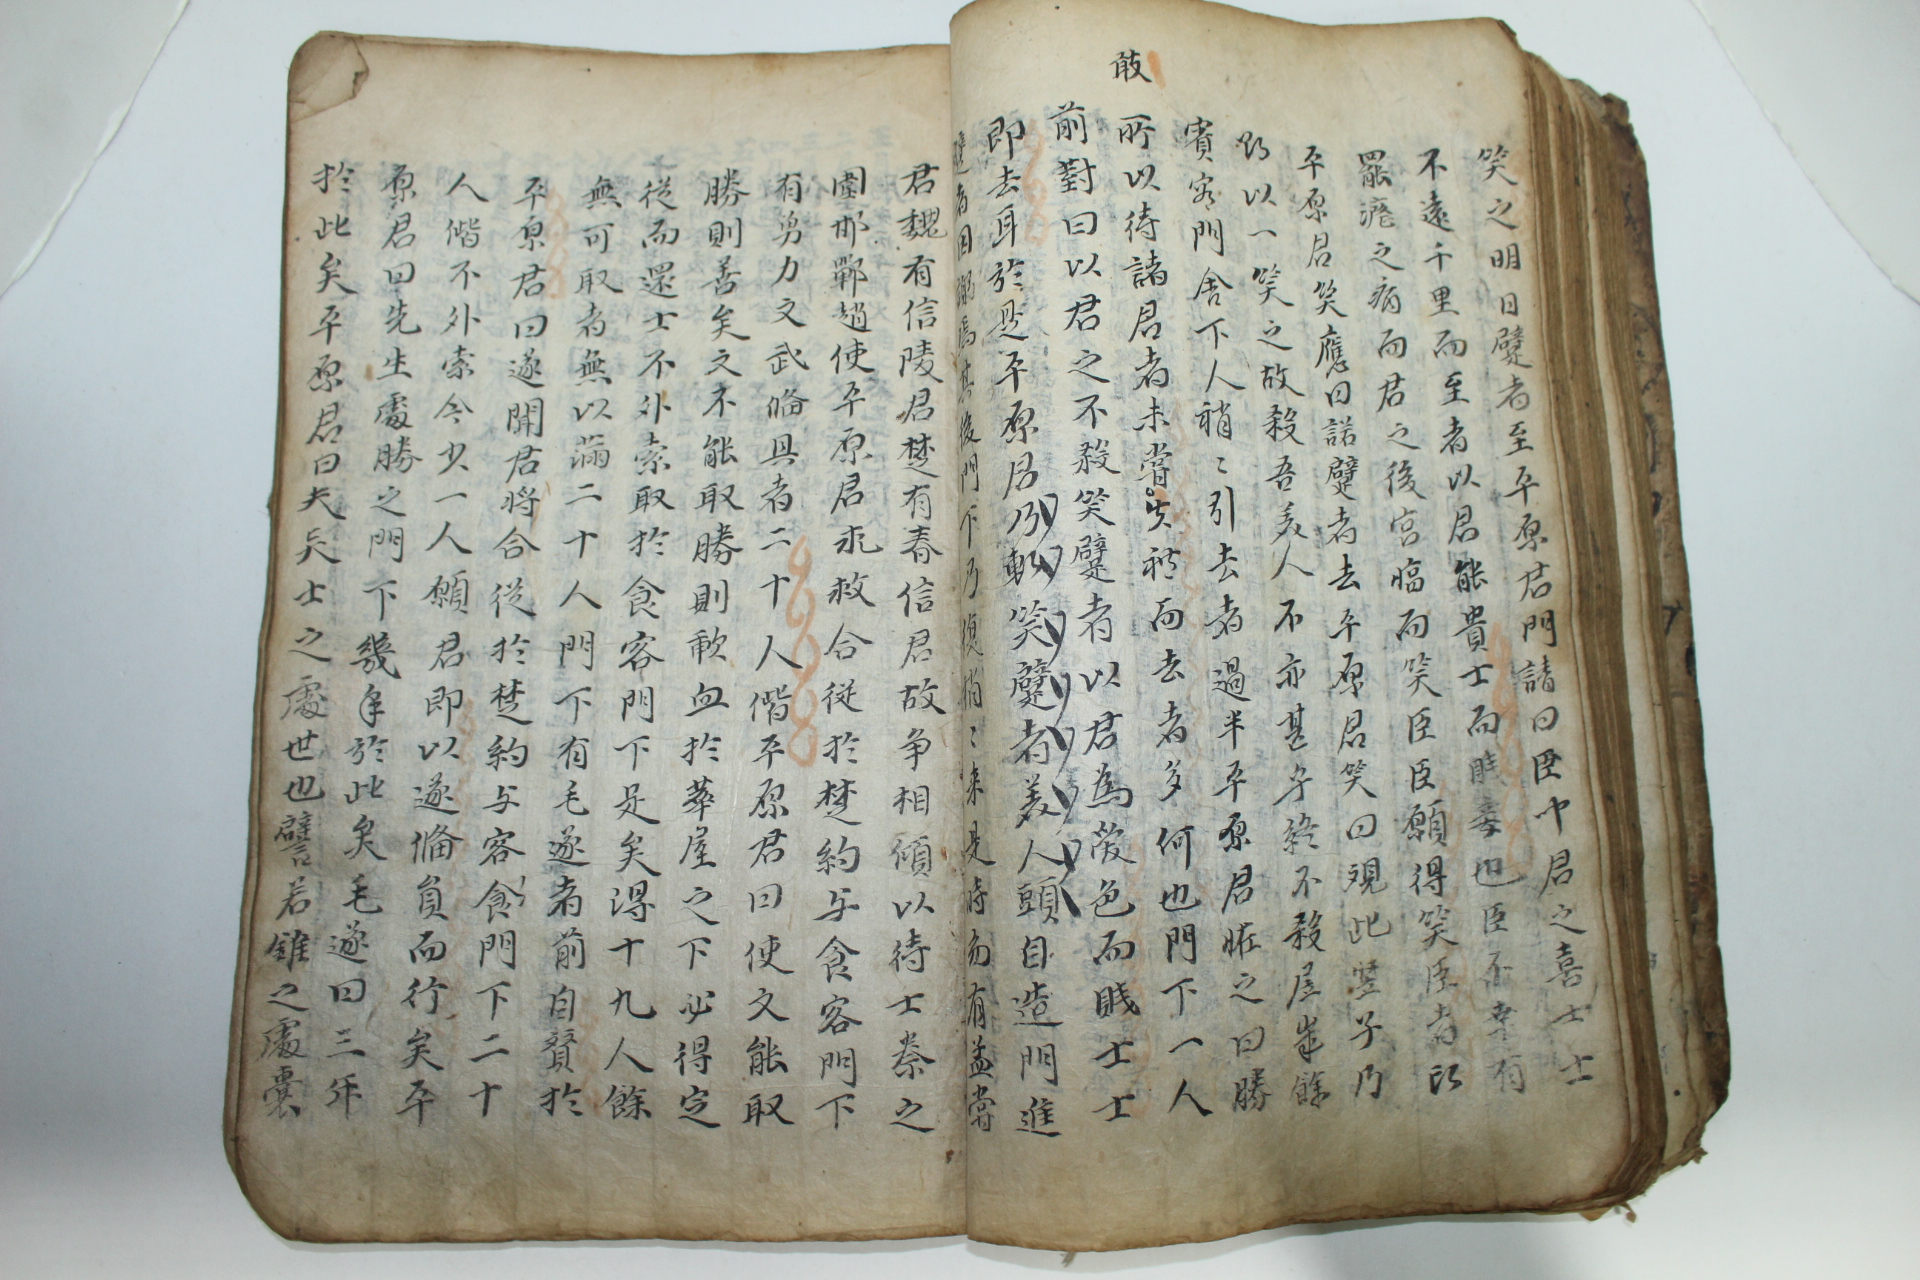 敢
笑之明日躄者至平原君門請曰臣聞君之喜士士
不遠千里而至者以君能貴士而賤妾也臣不幸有
罷癃之病而君之後宮臨而笑臣臣願得笑臣者頭
平原君笑應曰諾躄者去平原君笑曰觀此竪子乃
欲以一笑之故殺吾美人不亦甚乎終不殺居歲餘
賓客門舍下人稍〻引去者過半平原君怪之曰勝
所以待諸君者未嘗失礼而去者多何也門下一人
前對曰以君之不殺笑躄者以君為愛色而賤士士
即去耳於是平原君乃斬笑躄者美人頭自造門進
躄者因謝焉其後門下乃復稍〻来是時齊有孟嘗
君魏有信陵君楚有春信君故争相傾以待士秦之
圍邯鄲趙使平原君求救合從於楚約与食客門下
有勇力文武俻具者二十人偕平原君曰使文能取
勝則善矣文不能取勝則歃血於華屋之下必得定
從而還士不外索取於食客門下足矣得十九人餘
無可取者無以滿二十人門下有毛遂者前自賛於
平原君曰遂聞君將合從於楚約与客食門下二十
人偕不外索今少一人願君即以遂俻員而行矣平
原君曰先生處勝之門下幾年於此矣毛遂曰三年
於此矣平原君曰夫士之處世也譬若錐之處囊